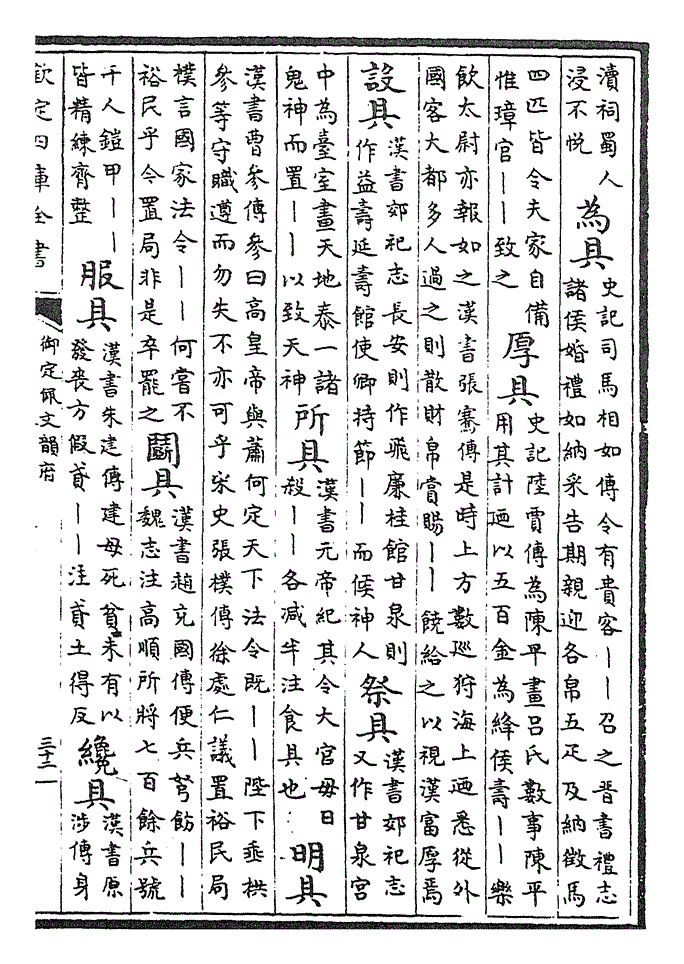 瀆祠蜀人
浸不悅
為具
史記司馬相如傳令有貴客｜｜召之晉書禮志
諸侯婚禮如納采告期親迎各帛五疋及納徵馬
四匹皆令夫家自備
惟璋官｜｜致之
厚具
史記陸賈傳為陳平畫呂氏數事陳平
用其計廼以五百金為絳侯壽｜｜樂
飲太尉亦報如之漢書張騫傳是時上方數廵狩海上廼悉從外
國客大都多人過之則散財帛賞賜｜｜饒給之以視漢富厚焉
設具
漢書郊祀志長安則作飛廉桂館甘泉則
作益壽延壽館使卿持節｜｜而候神人
祭具
漢書郊祀志
又作甘泉宮
中為臺室畫天地泰一諸
鬼神而置｜｜以致天神
所具
漢書元帝紀其令大官毋日
殺｜｜各減半注食具也
明具
漢書曹參傳參曰高皇帝與蕭何定天下法令既｜｜陛下垂拱
參等守職遵而勿失不亦可乎宋史張樸傳徐處仁議置裕民局
樸言國家法令｜｜何嘗不
裕民乎令置局非是卒罷之
鬭具
漢書趙充國傳便兵弩飭｜｜
魏志注高順所將七百餘兵號
千人鎧甲｜｜
皆精練齊整
服具
漢書朱建傳建母死貧未有以
發喪方假貣｜｜注貣土得反
纔具
漢書原
涉傳身
欽定四庫全書
御定佩文韻府
三十二